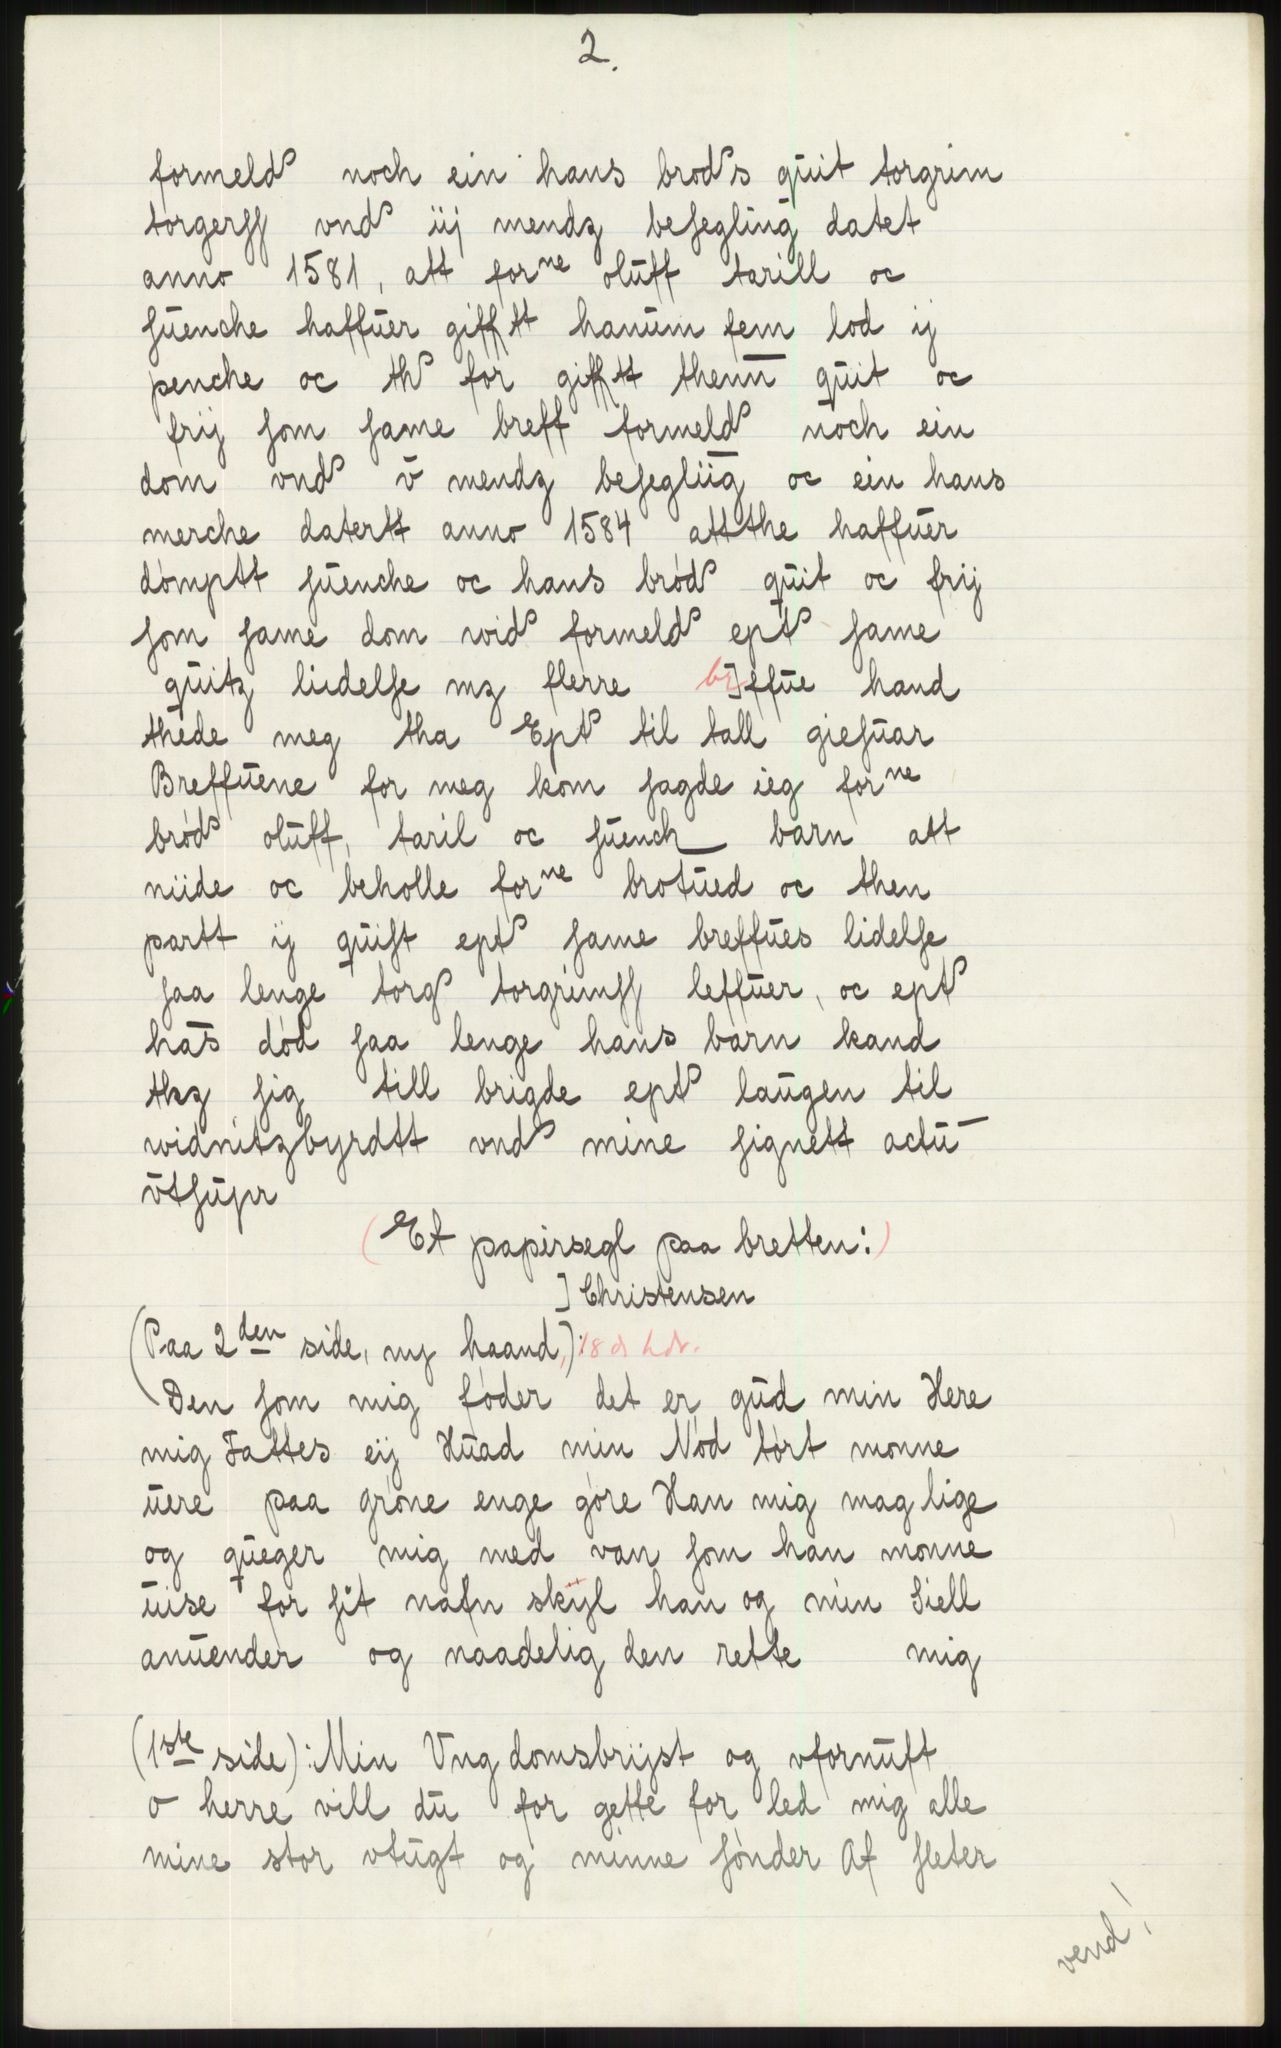 2.
formeld noch ein hans brods quit torgrim
torgerss vnd iij mendz besegling datet
anno 1581, att forne oluff tarill oc
suenche haffuer gifftt hanum fem lod ij
penche oc th for gifftt thenn quit oc
frij som same breff formeld noch ein
dom vnd v mendz besegliig oc ein hans
merche datertt anno 1584 atthe haffuer
dømptt suenche oc hans brød quit oc frij
som same dom wid formeld ept same
quitz liudelse mz flerre breffue hand
thede meg tha Ept til tall giesuar
Breffuene for meg kom sagde ieg forne
brød oluff, taril oc suench barn att
niide oc beholle forne brotued oc then
partt ij quist ept same breffues lidelse
saa lenge torg torgrimss leffuer, oc ept
has død saa lenge hans barn kand
thz sig till brigde ept laugen til
widnitzbyrdtt vnd mine signett actu
vtsupr
(Et papirsegl paa bretten:)
] Christensen
(Paa 2den side, ny haand,): 18 dr hdr.
Den som mig føder det er gud min Here
mig Fattes eij Huad min Nød tørt monne
uere paa grøne enge gøre Han mig mag lige
og queger mig med van som han monne
uise for sit nafn skyl han og min Siell
anuender og naadelig den rette mig
(1ste side): Min Vng domsbrijst og vfornuft
o herre vill du for gette for led mig alle
mine stor vtugt og minne sønder Af sleter
vend!